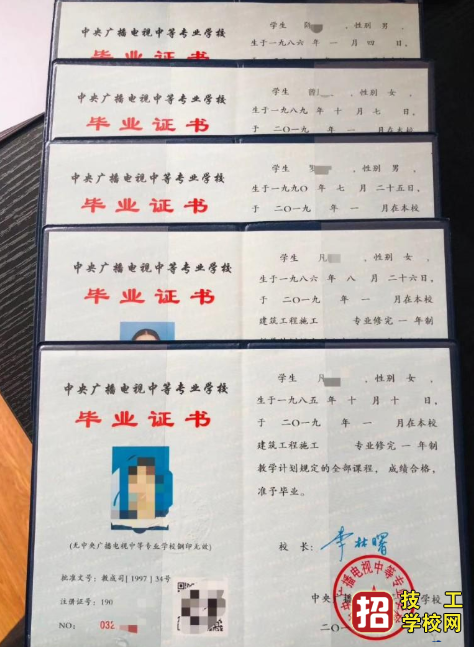 中央广播电视中等专业学校
毕业证书
学生 、性别 男 、
生于一九八六 年 一 月 四 日,
于 二〇一九 年 一
中央广播电视中等专业学校
毕业证书
学生 曾 、性别 女 、
生于一九八九 年 十 月 七 日,
于 二〇一九 年 一 月在本校
中央广播电视中等专业学校
毕业证书
学生 罗 、性别 男 、
生于一九九〇 年 七 月 二十五日,
于 二〇一九 年 一 月在本校
中央广播电视中等专业学校
毕业证书
学生 凡 、性别 女 、
生于一九八六 年 八 月 二十六日,
于 二〇一九 年 一 月在本校
建筑工程施工 专业修完 一 年制
中央广播电视中等专业学校
毕业证书
(无中央广播电视中等专业学校钢印无效)
批准文号:教成司[1997]34号
注册证号:190
NO: 032
学生 、性别 女 、
生于一九八五 年 十 月 十 日,
于 二〇一九 年 一 月在本校
建筑工程施工 专业修完 一 年制
教学计划规定的全部课程,成绩合格,
准予毕业。
校 长:李林曙
招
技工
学校网